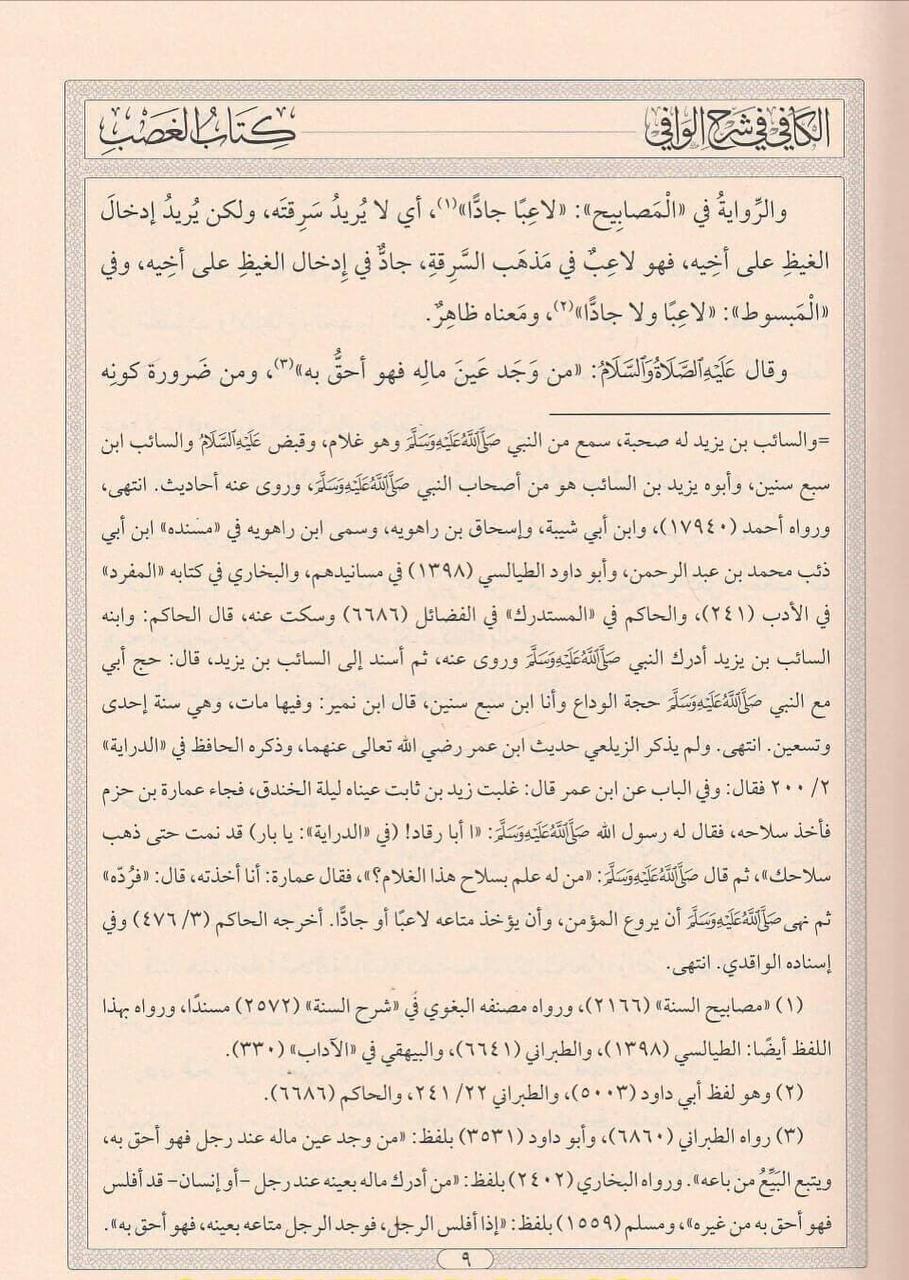 الكافي في شرح الوافي
كتاب الغصب
والرِّوايةُ في «الْمَصابِيح»: «لاعِبًا جادًّا»(١)، أي لا يُريدُ سَرِقتَه، ولكن يُريدُ إدخالَ
الغيظِ على أخِيه، فهو لاعِبٌ في مَذهَب السَّرِقةِ، جادٌّ في إدخال الغيظِ على أخِيه، وفي
«الْمَبسوط»: «لاعِبًا ولا جادًّا»(٢)، ومَعناه ظاهِرٌ.
وقال عَلَيْهِ الصَّلَاةُ وَالسَّلَامُ: «من وَجَد عَينَ مالِه فهو أحقُّ به»(٣)، ومن ضَرورة كونِه
=والسائب بن يزيد له صحبة، سمع من النبي صَلَّى اللَّهُ عَلَيْهِ وَسَلَّمَ وهو غلام، وقبض عَلَيْهِ السَّلَامُ والسائب ابن
سبع سنين، وأبوه يزيد بن السائب هو من أصحاب النبي صَلَّى اللَّهُ عَلَيْهِ وَسَلَّمَ، وروى عنه أحاديث. انتهى،
ورواه أحمد (١٧٩٤٠)، وابن أبي شيبة، وإسحاق بن راهويه، وسمى ابن راهويه في «مسنده» ابن أبي
ذئب محمد بن عبد الرحمن، وأبو داود الطيالسي (١٣٩٨) في مسانيدهم، والبخاري في كتابه «المفرد»
في الأدب (٢٤١)، والحاكم في «المستدرك» في الفضائل (٦٦٨٦) وسكت عنه، قال الحاكم: وابنه
السائب بن يزيد أدرك النبي صَلَّى اللَّهُ عَلَيْهِ وَسَلَّمَ وروى عنه، ثم أسند إلى السائب بن يزيد، قال: حج أبي
مع النبي صَلَّى اللَّهُ عَلَيْهِ وَسَلَّمَ حجة الوداع وأنا ابن سبع سنين، قال ابن نمير: وفيها مات، وهي سنة إحدى
وتسعين. انتهى. ولم يذكر الزيلعي حديث ابن عمر رضي الله تعالى عنهما، وذكره الحافظ في «الدراية»
٢/ ٢٠٠ فقال: وفي الباب عن ابن عمر قال: غلبت زيد بن ثابت عيناه ليلة الخندق، فجاء عمارة بن حزم
فأخذ سلاحه، فقال له رسول الله صَلَّى اللَّهُ عَلَيْهِ وَسَلَّمَ: «ا أبا رقاد! (في «الدراية»: يا بار) قد نمت حتى ذهب
سلاحك»، ثم قال صَلَّى اللَّهُ عَلَيْهِ وَسَلَّمَ: «من له علم بسلاح هذا الغلام؟»، فقال عمارة: أنا أخذته، قال: «فرُدّه»
ثم نهى صَلَّى اللَّهُ عَلَيْهِ وَسَلَّمَ أن يروع المؤمن، وأن يؤخذ متاعه لاعبًا أو جادًّا. أخرجه الحاكم (٣/ ٤٧٦) وفي
إسناده الواقدي. انتهى.
(١) «مصابيح السنة» (٢١٦٦)، ورواه مصنفه البغوي في «شرح السنة» (٢٥٧٢) مسندًا، ورواه بهذا
اللفظ أيضًا: الطيالسي (١٣٩٨)، والطبراني (٦٦٤١)، والبيهقي في «الآداب» (٣٣٠).
(٢) وهو لفظ أبي داود (٥٠٠٣)، والطبراني ٢٢/ ٢٤١، والحاكم (٦٦٨٦).
(٣) رواه الطبراني (٦٨٦٠)، وأبو داود (٣٥٣١) بلفظ: «من وجد عين ماله عند رجل فهو أحق به،
ويتبع البَيِّعُ من باعه». ورواه البخاري (٢٤٠٢) بلفظ: «من أدرك ماله بعينه عند رجل -أو إنسان- قد أفلس
فهو أحق به من غيره»، ومسلم (١٥٥٩) بلفظ: «إذا أفلس الرجل، فوجد الرجل متاعه بعينه، فهو أحق به».
٩